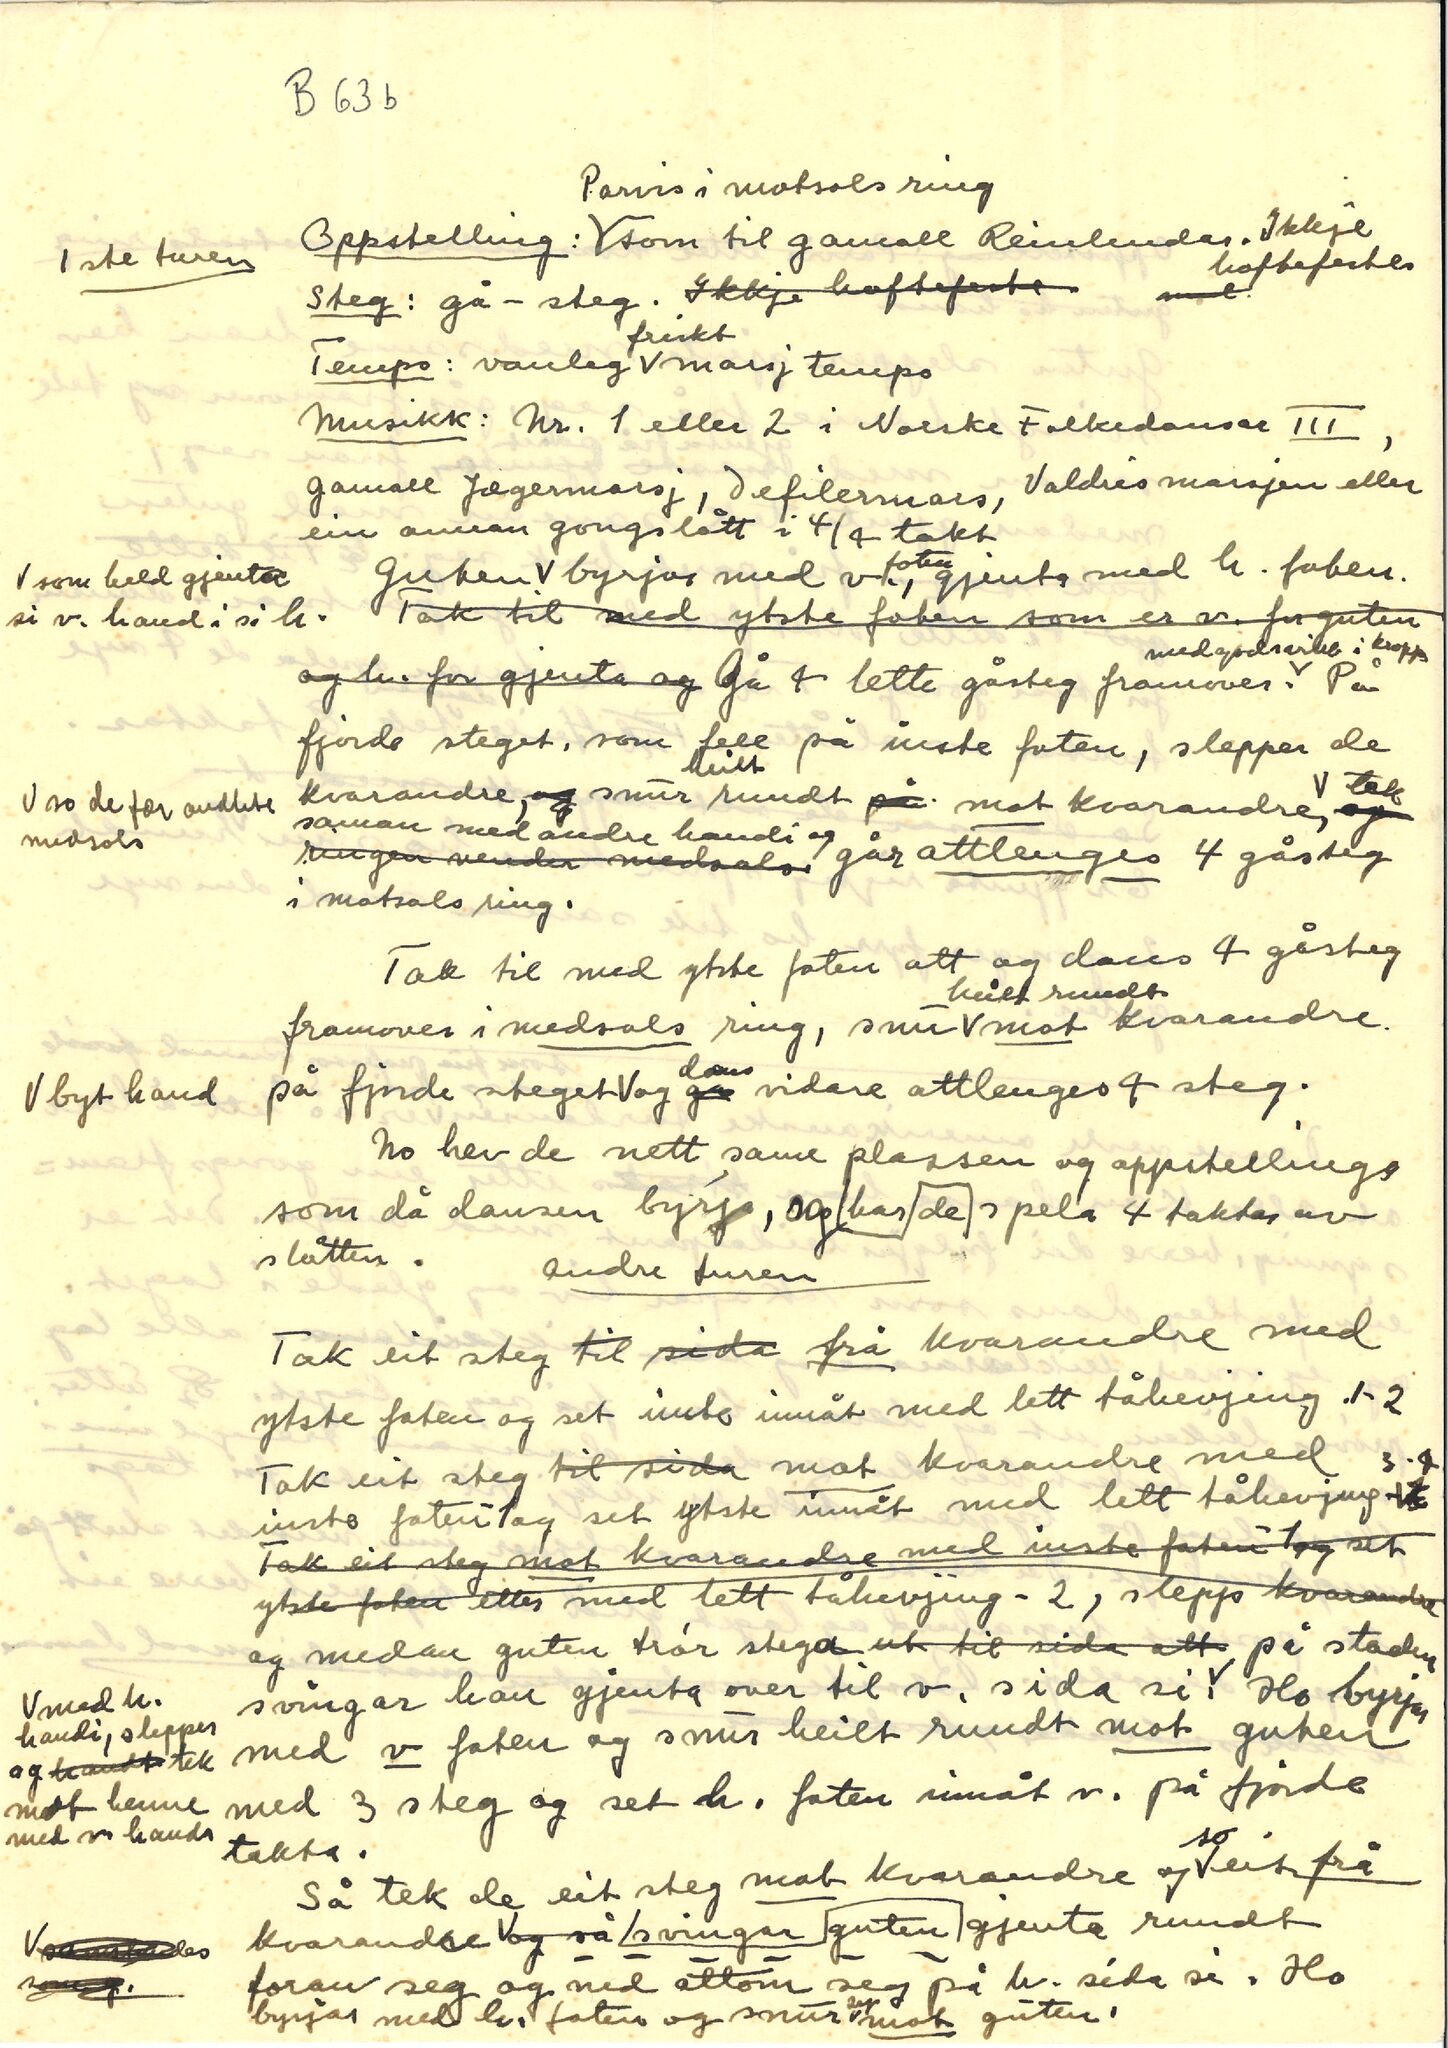 B 63 b
Parvis i motsols ring
1 ste turen
Oppstelling: V som til gamall Reinlendar. Ikkje
hoftefestes
Steg: gå - steg. Ikkje hoftefeste.
friskt
Tempo: vanleg V marsj tempo
Musikk: Nr. 1 eller 2 i Norske Folkedansar III,
gamall Jægermarsj, Defilermars, Valdresmarsjen eller
ein annan gongslått i 4/4 takt
V som held gjenta
si v. hand i si h.
foten
Guten V byrjar med v., gjenta med h. foten.
Tak til med ytste foten som er v. for guten
med god svikt i kropp
og h. for gjenta og Gå 4 lette gåsteg framover. V På
fjorde steget, som fell på inste foten, slepper de
heilt
V so de fær andlite
medsols
kvarandre, og snur rundt på mot kvarandre, V tek og
saman med andre handi og
ringen vender medsols. går attlenges 4 gåsteg
i motsols ring.
Tak til med ytste foten att og dans 4 gåsteg
heilt rundt
framover i medsols ring, snu V mot kvarandre.
V byt hand
dans
på fjorde steget V og gå vidare attlenges 4 steg.
No hev de nett same plassen og oppstellinga
som då dansen byrja, og har de spela 4 taktar av
slåtten.
andre turen
Tak eit steg til sida frå kvarandre med
ytste foten og set inste innåt med lett tåhevjing .1-2
Tak eit steg til sida mot kvarandre med 3-4
inste foten 1 og set ytste innåt med lett tåhevjing
Tak eit steg mot kvarandre med inste foten 1 og set
ytste foten etter med lett tåhevjing - 2, slepp kvarandre
og medan guten trør stega ut til sida att på staden
V med h.
handi, slepper
og tek
mot henne
med v. handa
svingar han gjenta over til v. sida si. V Ho byrjar
med v foten og snur heilt rundt mot guten
med 3 steg og set h. foten innåt v. på fjorde
takta.
so
Så tek de eit steg mot kvarandre og V eit frå
kvarandre V og så svingar guten gjenta rundt
foran seg og ned attom seg på h. sida si. Ho
byrjar med h. foten og snur mot guten.